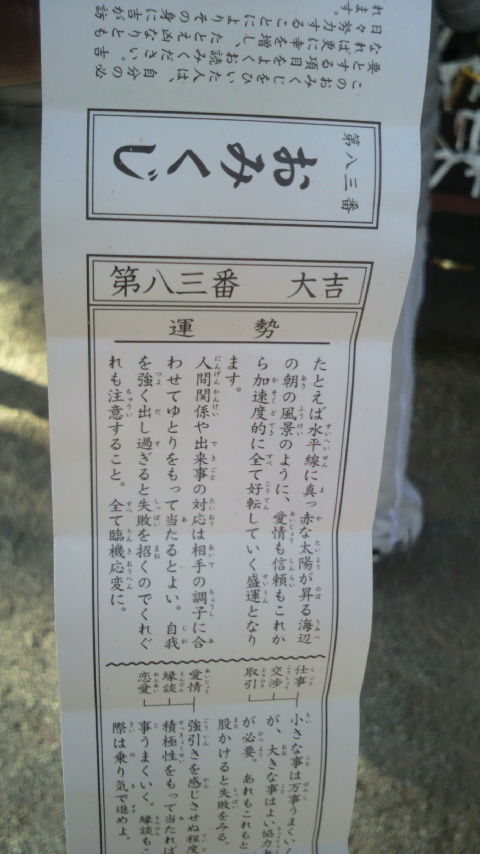 このおみくじをひいた人は、自分の必
要とする項目をよくお読みください。吉
なれば更に幸を増し、たとえ凶なりとも
日々努力することによりその身に吉が訪
れます。
第八三番
おみくじ
第八三番 大吉
運勢
たとえば水平線に真っ赤な太陽が昇る海辺
の朝の風景のように、愛情も信頼もこれか
ら加速度的に全て好転していく盛運となり
ます。
人間関係や出来事の対応は相手の調子に合
わせてゆとりをもって当たるとよい。自我
を強く出し過ぎると失敗を招くのでくれぐ
れも注意すること。全て臨機応変に。
仕事
交渉
取引
小さな事は万事うまくい
が、大きな事はよい協力
が必要。あれもこれもと
股かけると失敗をみる。
愛情
縁談
恋愛
強引さを感じさせぬ程度
積極性をもって当たれば
事うまくいく。縁談も
際は乗り気で進めよ。